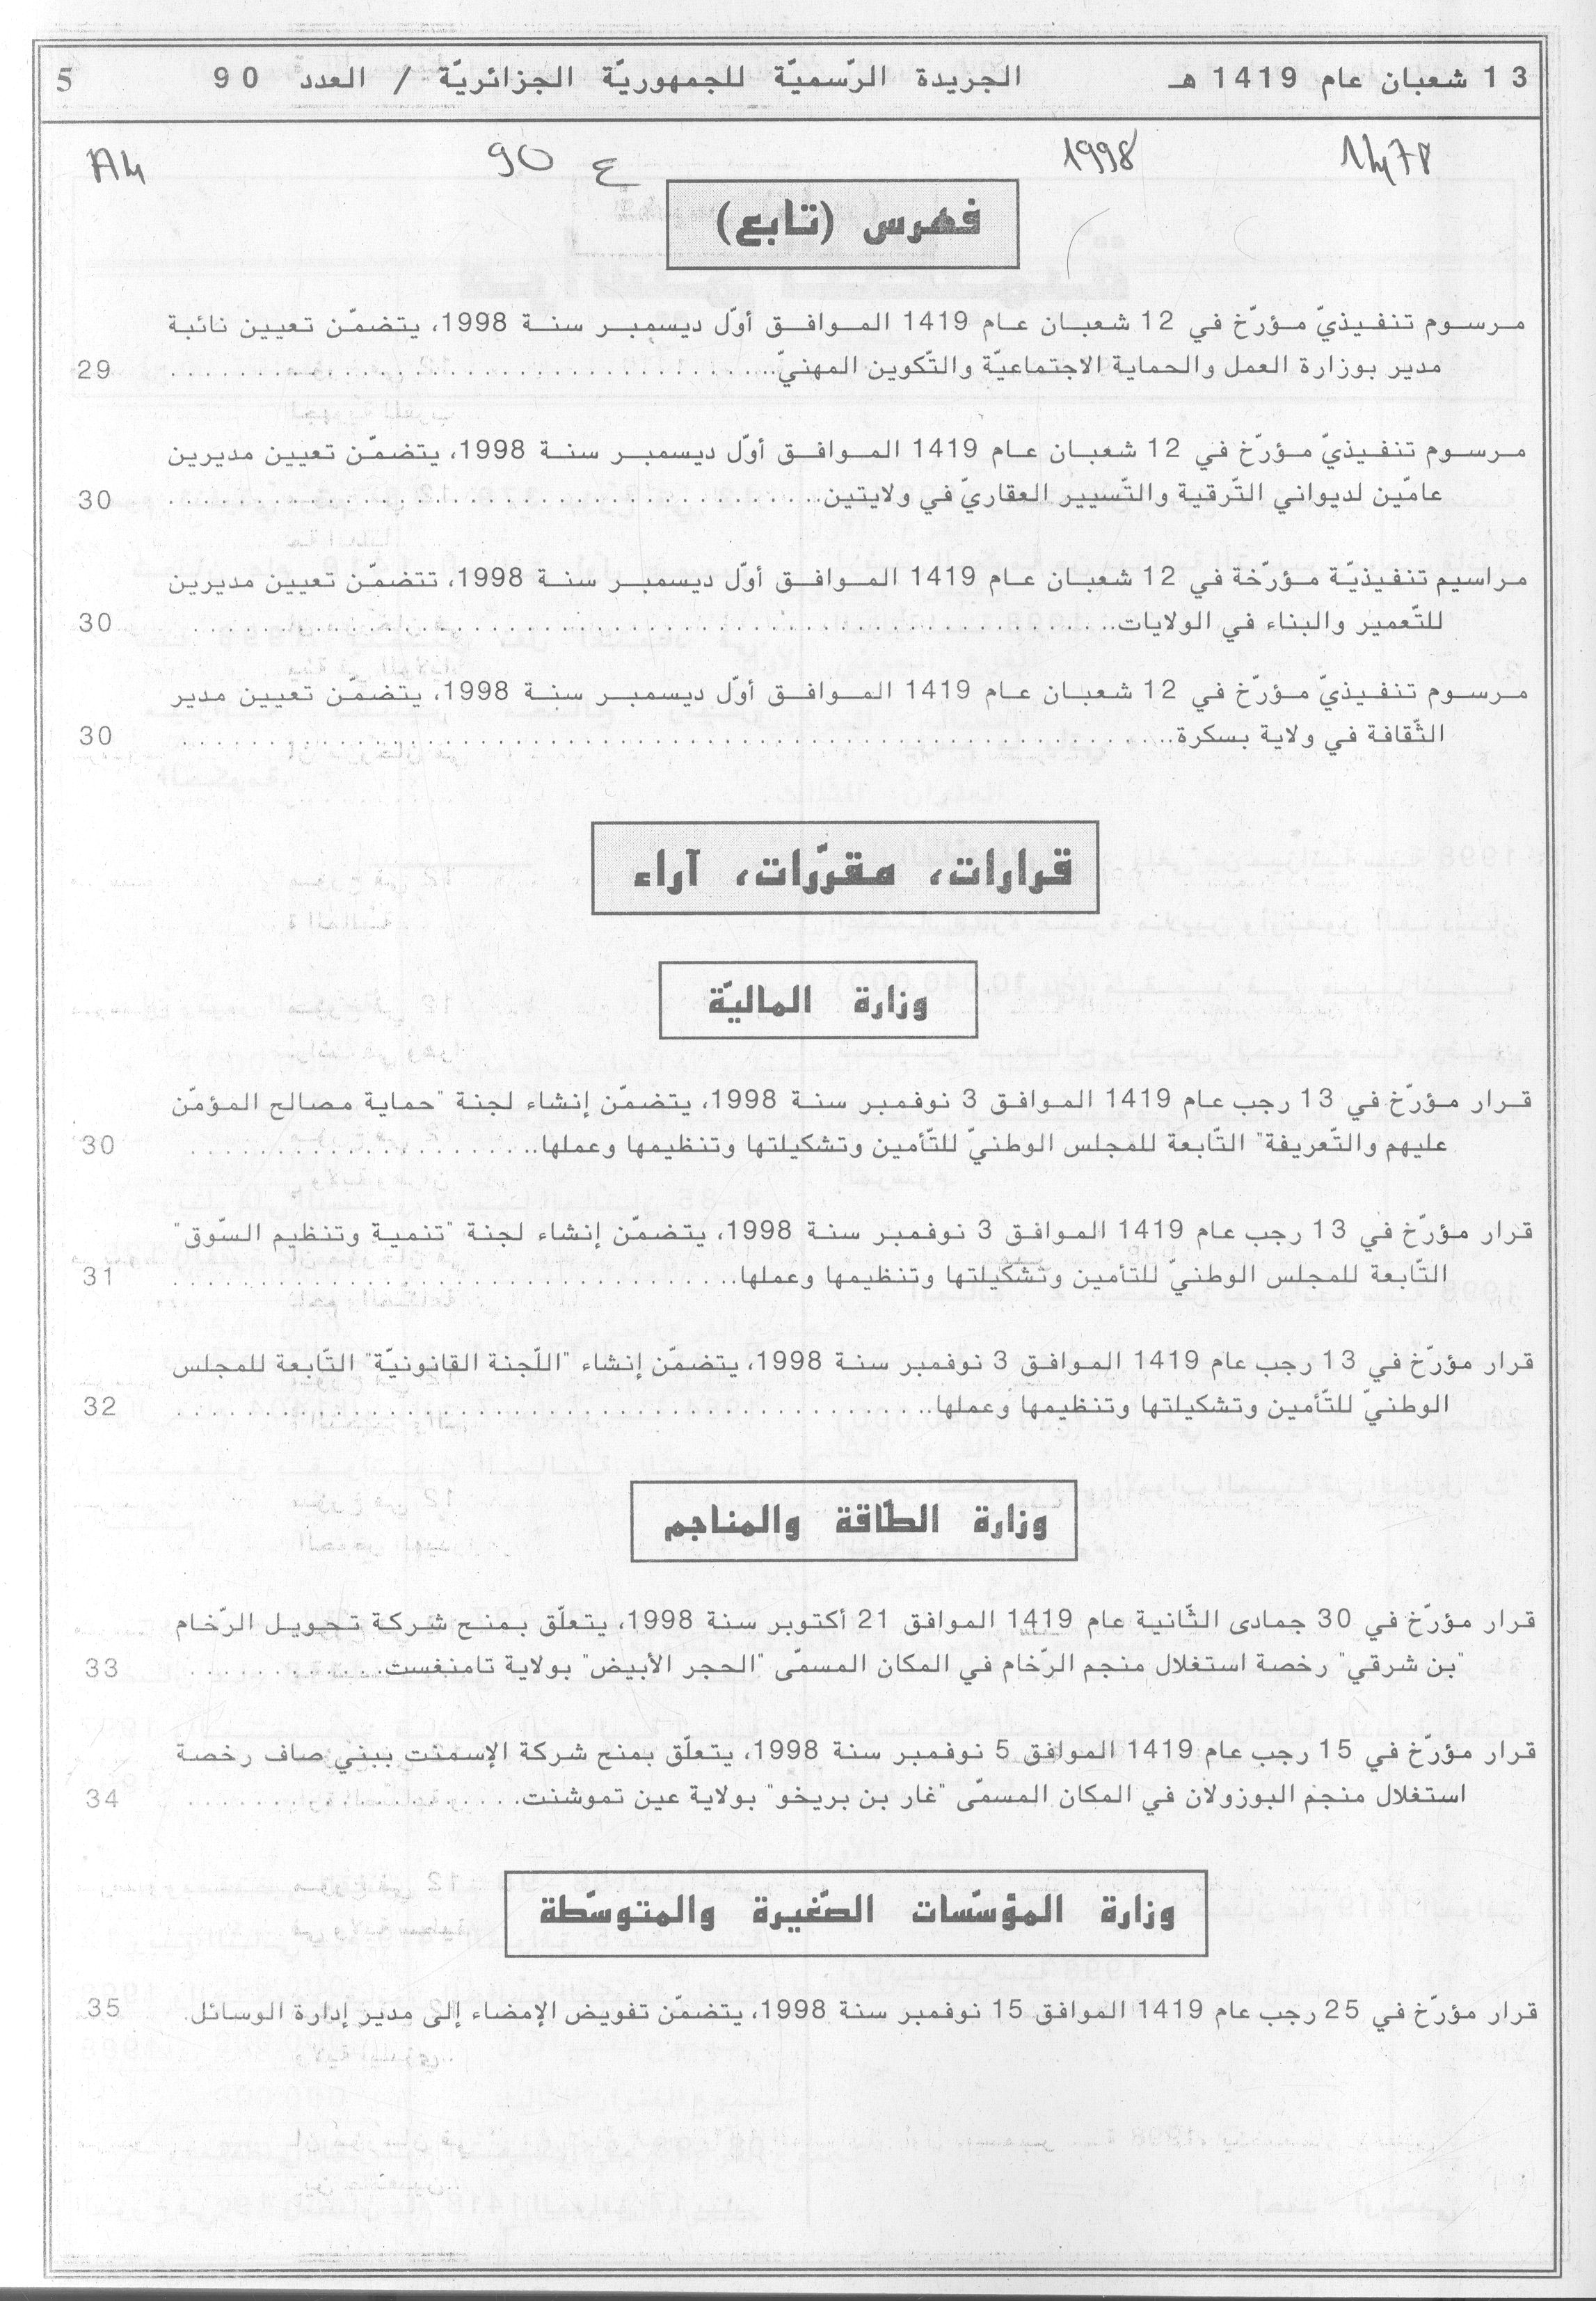 13 شعبان عام 1419 هـ
الجريدة الرّسميّة للجمهوريّة الجزائريّة / العدد 90
5
1998
ع 90
فهرس (تابع)
مرسوم تنفيذيّ مؤرّخ في 12 شعبان عام 1419 الموافق أوّل ديسمبر سنة 1998، يتضمّن تعيين نائبة
مدير بوزارة العمل والحماية الاجتماعيّة والتّكوين المهنيّ.. 29
مرسوم تنفيذيّ مؤرّخ في 12 شعبان عام 1419 الموافق أوّل ديسمبر سنة 1998، يتضمّن تعيين مديرين
عامّين لديواني التّرقية والتّسيير العقاريّ في ولايتين.. 30
مراسيم تنفيذيّة مؤرّخة في 12 شعبان عام 1419 الموافق أوّل ديسمبر سنة 1998، تتضمّن تعيين مديرين
للتّعمير والبناء في الولايات.. 30
مرسوم تنفيذيّ مؤرّخ في 12 شعبان عام 1419 الموافق أوّل ديسمبر سنة 1998، يتضمّن تعيين مدير
الثّقافة في ولاية بسكرة.. 30
قرارات، مقرّرات، آراء
وزارة الماليّة
قرار مؤرّخ في 13 رجب عام 1419 الموافق 3 نوفمبر سنة 1998، يتضمّن إنشاء لجنة "حماية مصالح المؤمّن
عليهم والتّعريفة" التّابعة للمجلس الوطنيّ للتّأمين وتشكيلتها وتنظيمها وعملها.. 30
قرار مؤرّخ في 13 رجب عام 1419 الموافق 3 نوفمبر سنة 1998، يتضمّن إنشاء لجنة "تنمية وتنظيم السّوق"
التّابعة للمجلس الوطنيّ للتأمين وتشكيلتها وتنظيمها وعملها.. 31
قرار مؤرّخ في 13 رجب عام 1419 الموافق 3 نوفمبر سنة 1998، يتضمّن إنشاء "اللّجنة القانونيّة" التّابعة للمجلس
الوطنيّ للتّأمين وتشكيلتها وتنظيمها وعملها.. 32
وزارة الطّاقة والمناجم
قرار مؤرّخ في 30 جمادى الثّانية عام 1419 الموافق 21 أكتوبر سنة 1998، يتعلّق بمنح شركة تحويل الرّخام
"بن شرقي" رخصة استغلال منجم الرّخام في المكان المسمّى "الحجر الأبيض" بولاية تامنغست.. 33
قرار مؤرّخ في 15 رجب عام 1419 الموافق 5 نوفمبر سنة 1998، يتعلّق بمنح شركة الإسمنت ببني صاف رخصة
استغلال منجم البوزولان في المكان المسمّى "غار بن بريخو" بولاية عين تموشنت.. 34
وزارة المؤسّسات الصّغيرة والمتوسّطة
قرار مؤرّخ في 25 رجب عام 1419 الموافق 15 نوفمبر سنة 1998، يتضمّن تفويض الإمضاء إلى مدير إدارة الوسائل. 35